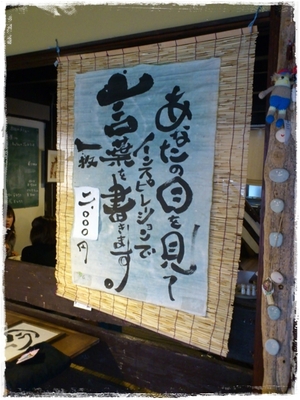 あなたの目を見て
インスピレションで
言葉を書きます。
一枚
二、〇〇〇円